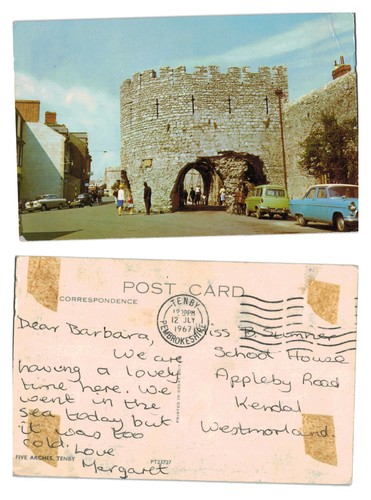 POST CARD
CORRESPONDENCE
TENBY
12 30 PM
12 JLY
1967
PEMBROKESHIRE
Dear Barbara,
We are
having a lovely
time here. We
went in the
sea today but
it was too
cold. Love
Margaret
iss B. Stunner
School House
Appleby Road
Kendal
Westmorland.
FIVE ARCHES, TENBY
PT23727